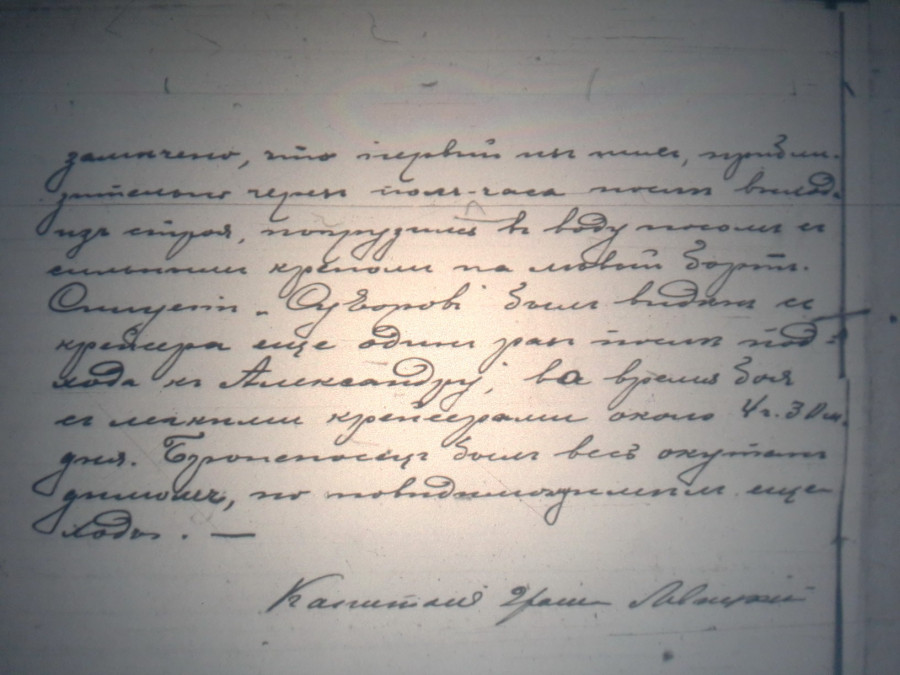 замечено, что первый из них, прибли-
зительно через полъ-часа после выхода
изъ строя, погрузился въ воду носомъ съ
сильнымъ креномъ на левый бортъ.
Силуетъ „Суворовъ" былъ виденъ съ
крейсера еще одинъ разъ после под-
хода къ Александру, во время боя
съ легкими крейсерами около 4 ч. 30 м.
дня. Броненосецъ былъ весь окутанъ
дымомъ, но повидимому имелъ еще
ходъ. —
Капитанъ 2 ранга Левицкій